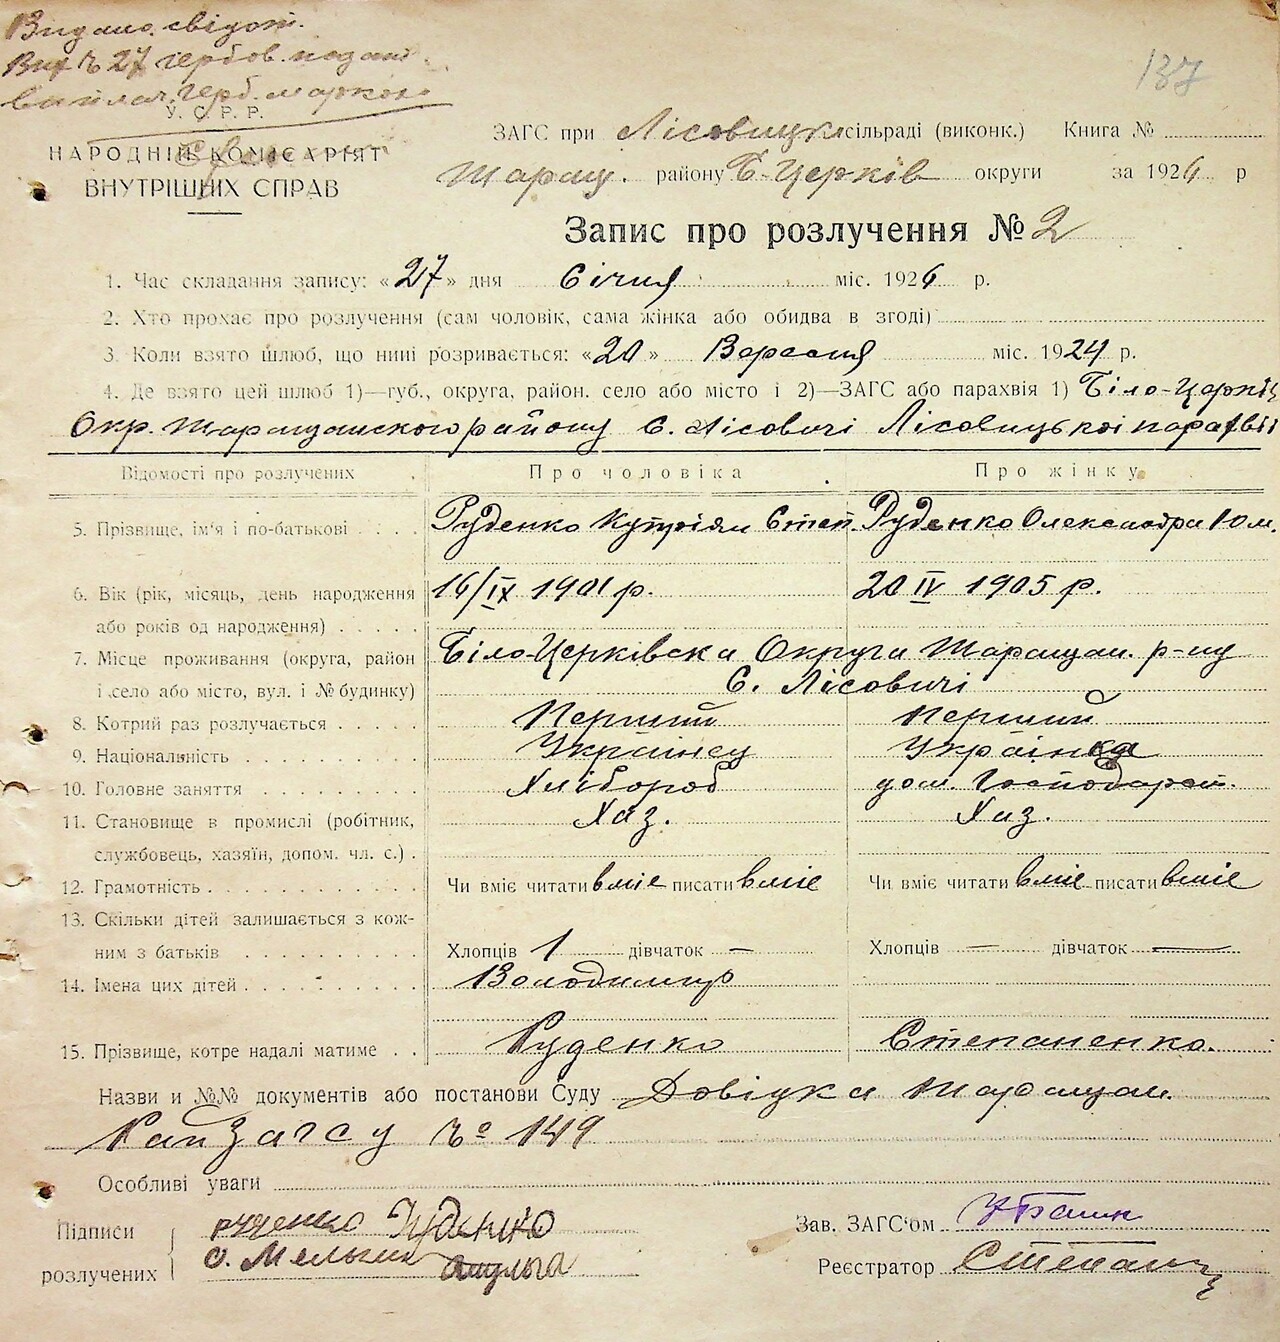 Видано свідот.
27 гербов.
герб. маркою
137
У. С. Р. Р.
НАРОДНІЙ КОМІСАРІЯТ
ВНУТРІШНИХ СПРАВ
ЗАГС при Лісовицк. сільраді (виконк.) Книга №
Таращ. району Б-Церків округи за 1926 р
Запис про розлучення № 2
1. Час складання запису: «27» дня Січня міс. 1926 р.
2. Хто прохає про розлучення (сам чоловік, сама жінка або обидва в згоді)
3. Коли взято шлюб, що нині розривається: «20» Вересня міс. 1924 р.
4. Де взято цей шлюб 1)—губ., округа, район. село або місто і 2)—ЗАГС або парахвія 1) Біло-Церків
Окр. Таращанского району С. Лісовичі Лісовицької парафії
Відомості про розлучених Про чоловіка Про жінку
5. Прізвище, ім'я і по-батькові Руденко Купріян Степ. Руденко Олександра Юм.
6. Вік (рік, місяць, день народження 16/IX 1901 р. 20 IV 1905 р.
або років од народження)
7. Місце проживання (округа, район Біло-Церківска Округа Таращан. р-ну
і село або місто, вул. і № будинку) С. Лісовичі
8. Котрий раз розлучається Перший Перший
9. Національність Українец Українка
10. Головне заняття Хлібороб дом. Господарст.
11. Становище в промислі (робітник, Хаз. Хаз.
службовець, хазяїн, допом. чл. с.)
12. Грамотність Чи вміє читати вміє писати вміє Чи вміє читати вміє писати вміє
13. Скільки дітей залишається з кож-
ним з батьків Хлопців 1 дівчаток — Хлопців — дівчаток —
14. Імена цих дітей Володимир
15. Прізвище, котре надалі матиме Руденко Степаненко.
Назви и №№ документів або постанови Суду Довідка Таращан.
РайЗагсу № 149
Особливі уваги
Підписи руденко Руденко Зав. ЗАГС'ом
розлучених О. Мельник Реєстратор